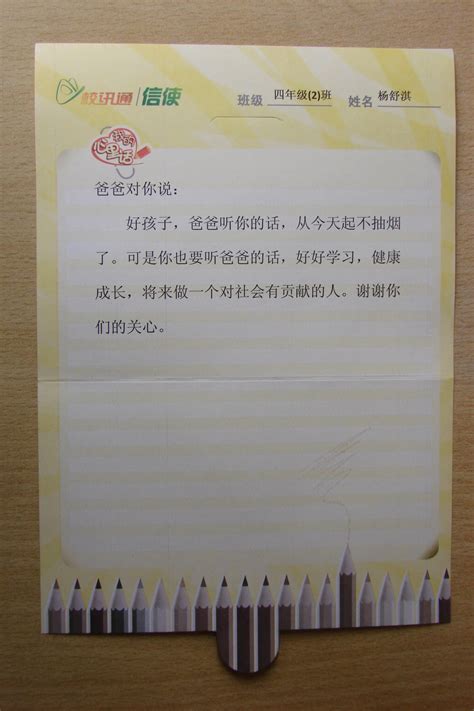 校讯通 信使
班级 四年级(2)班 姓名 杨舒淇
我的心里话
爸爸对你说：
好孩子，爸爸听你的话，从今天起不抽烟
了。可是你也要听爸爸的话，好好学习，健康
成长，将来做一个对社会有贡献的人。谢谢你
们的关心。